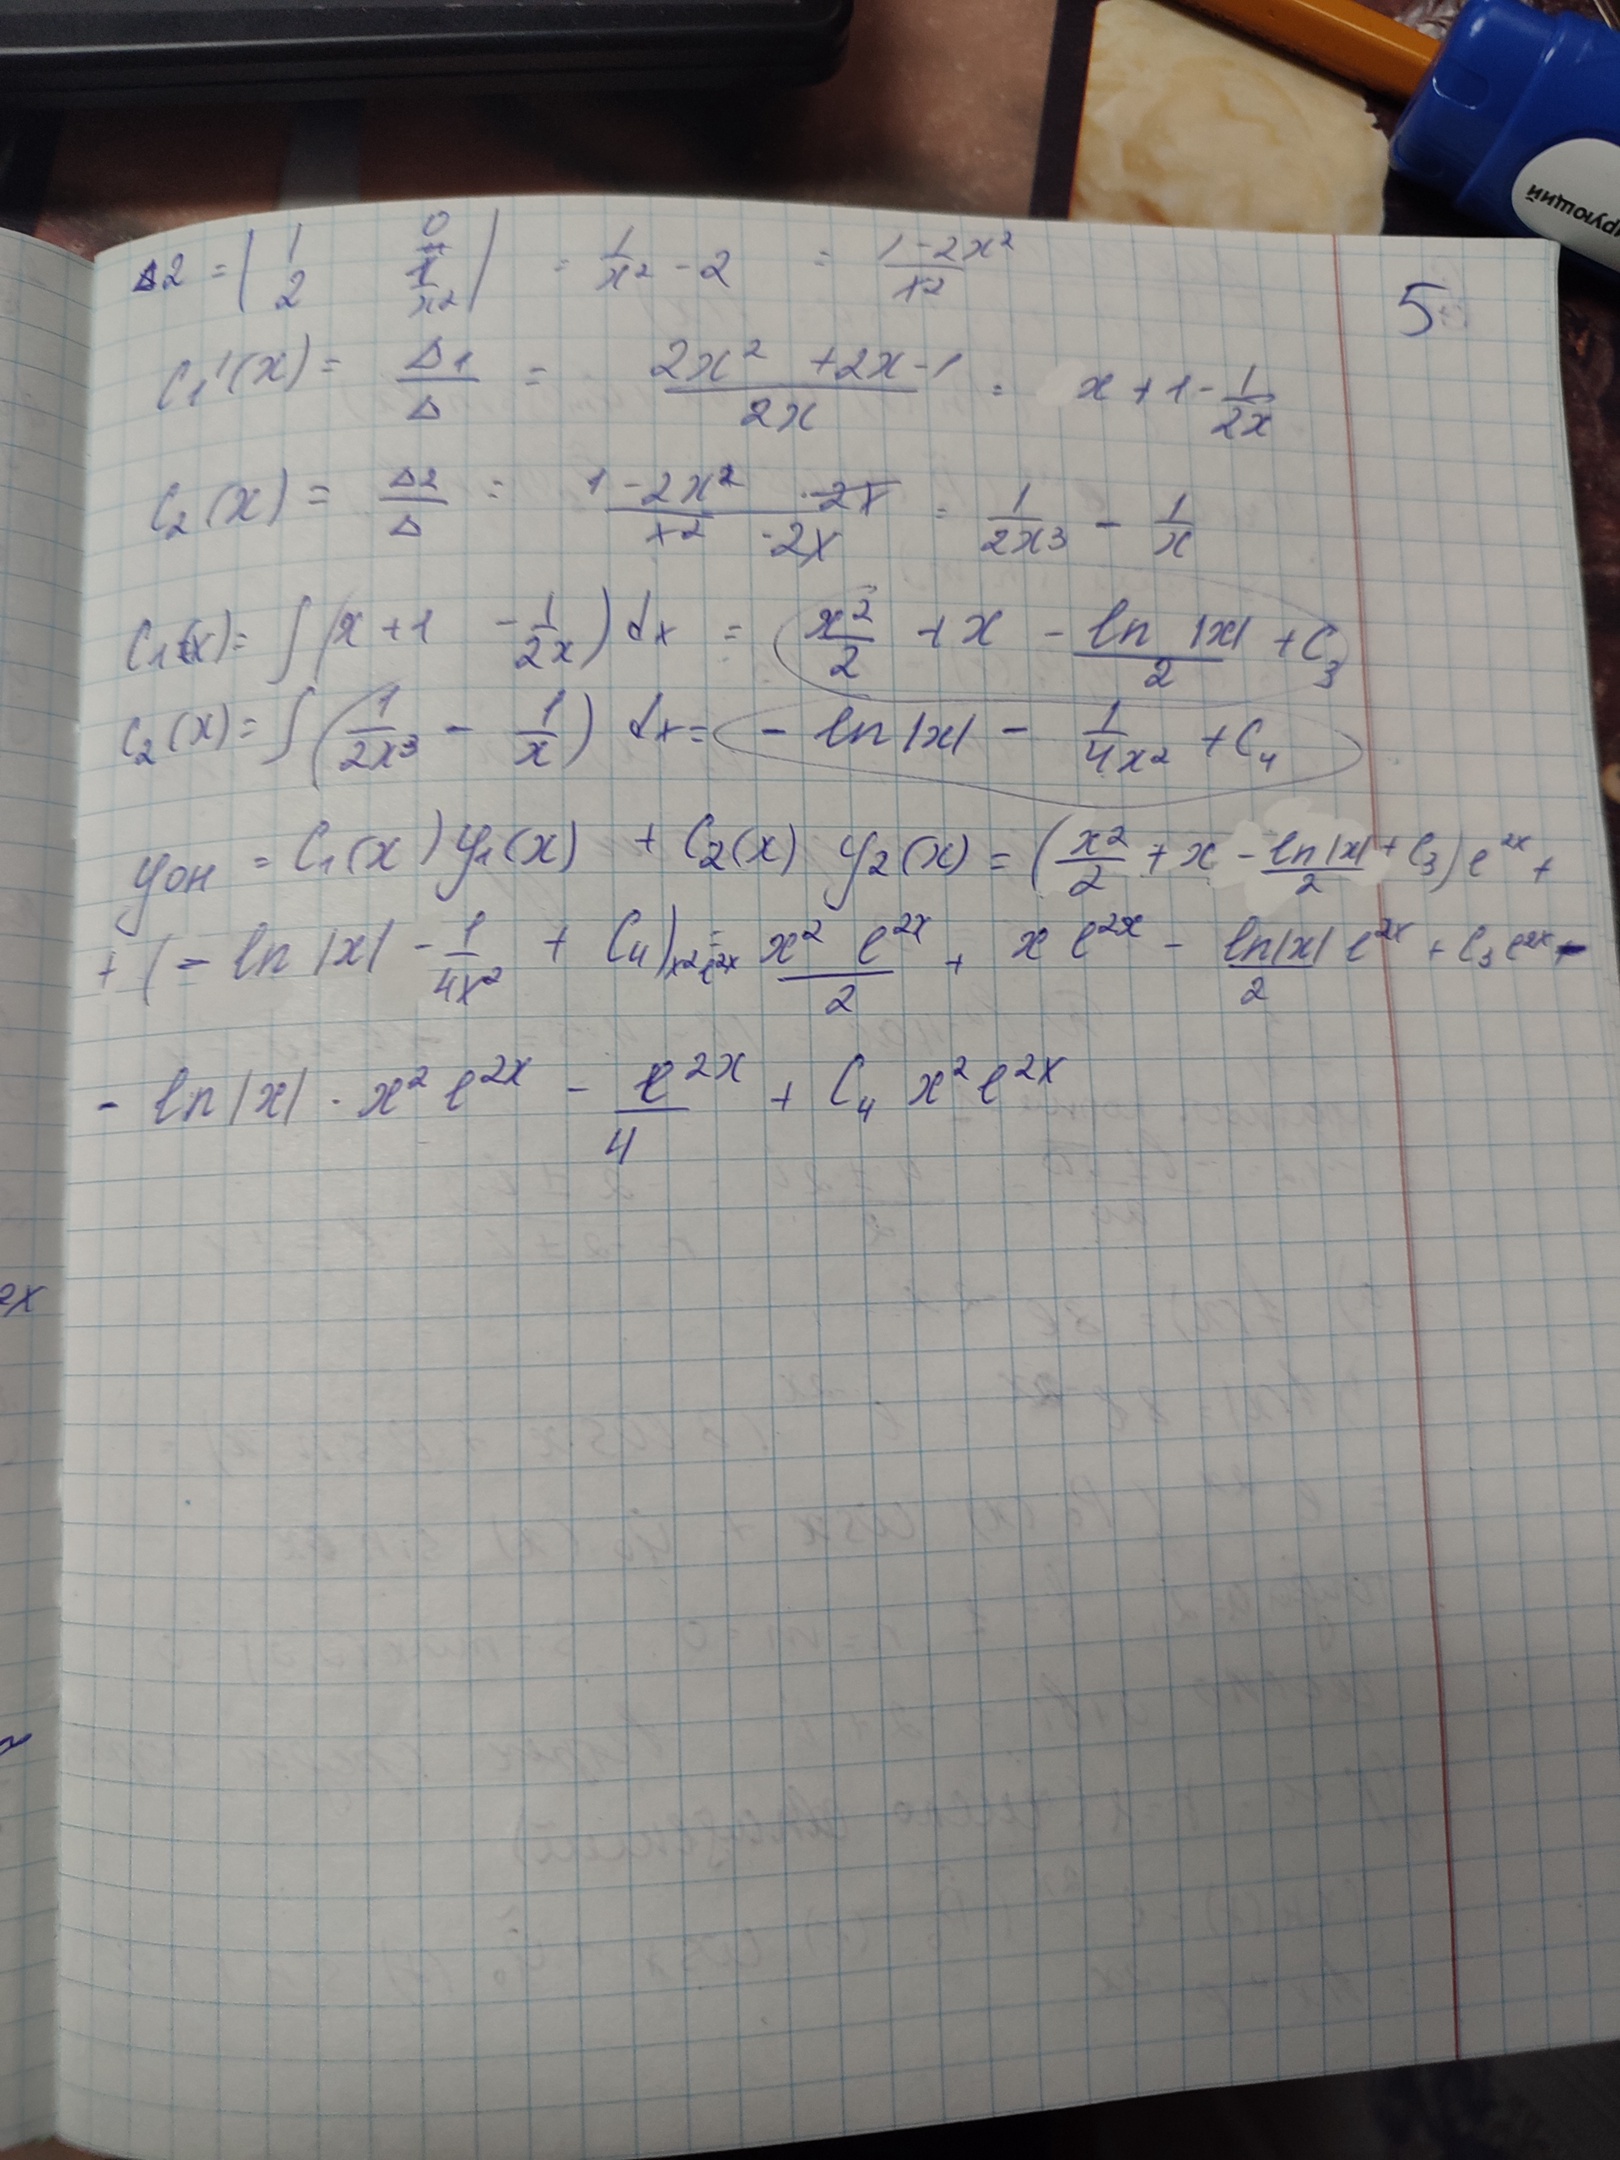 Δ2 = | 1 0 | = 1/x² - 2 = (1-2x²)/x²
| 2 1/x² |
5
C₁'(x) = Δ1/Δ = (2x² +2x-1)/2x = x + 1 - 1/2x
C₂(x) = Δ2/Δ = (1-2x²)/(x² · 2x) = 1/2x³ - 1/x
C₁(x) = ∫(x+1 - 1/2x) dx = x²/2 + x - ln |x|/2 + C₃
C₂(x) = ∫(1/2x³ - 1/x) dx = - ln |x| - 1/4x² + C₄
yон = C₁(x) y₁(x) + C₂(x) y₂(x) = (x²/2 + x - ln|x|/2 + C₃) e²ˣ +
+ (- ln |x| - 1/4x² + C₄) x²e²ˣ = x² e²ˣ/2 + x e²ˣ - ln|x|/2 e²ˣ + C₃ e²ˣ -
- ln |x| · x² e²ˣ - e²ˣ/4 + C₄ x² e²ˣ
2x
рующий